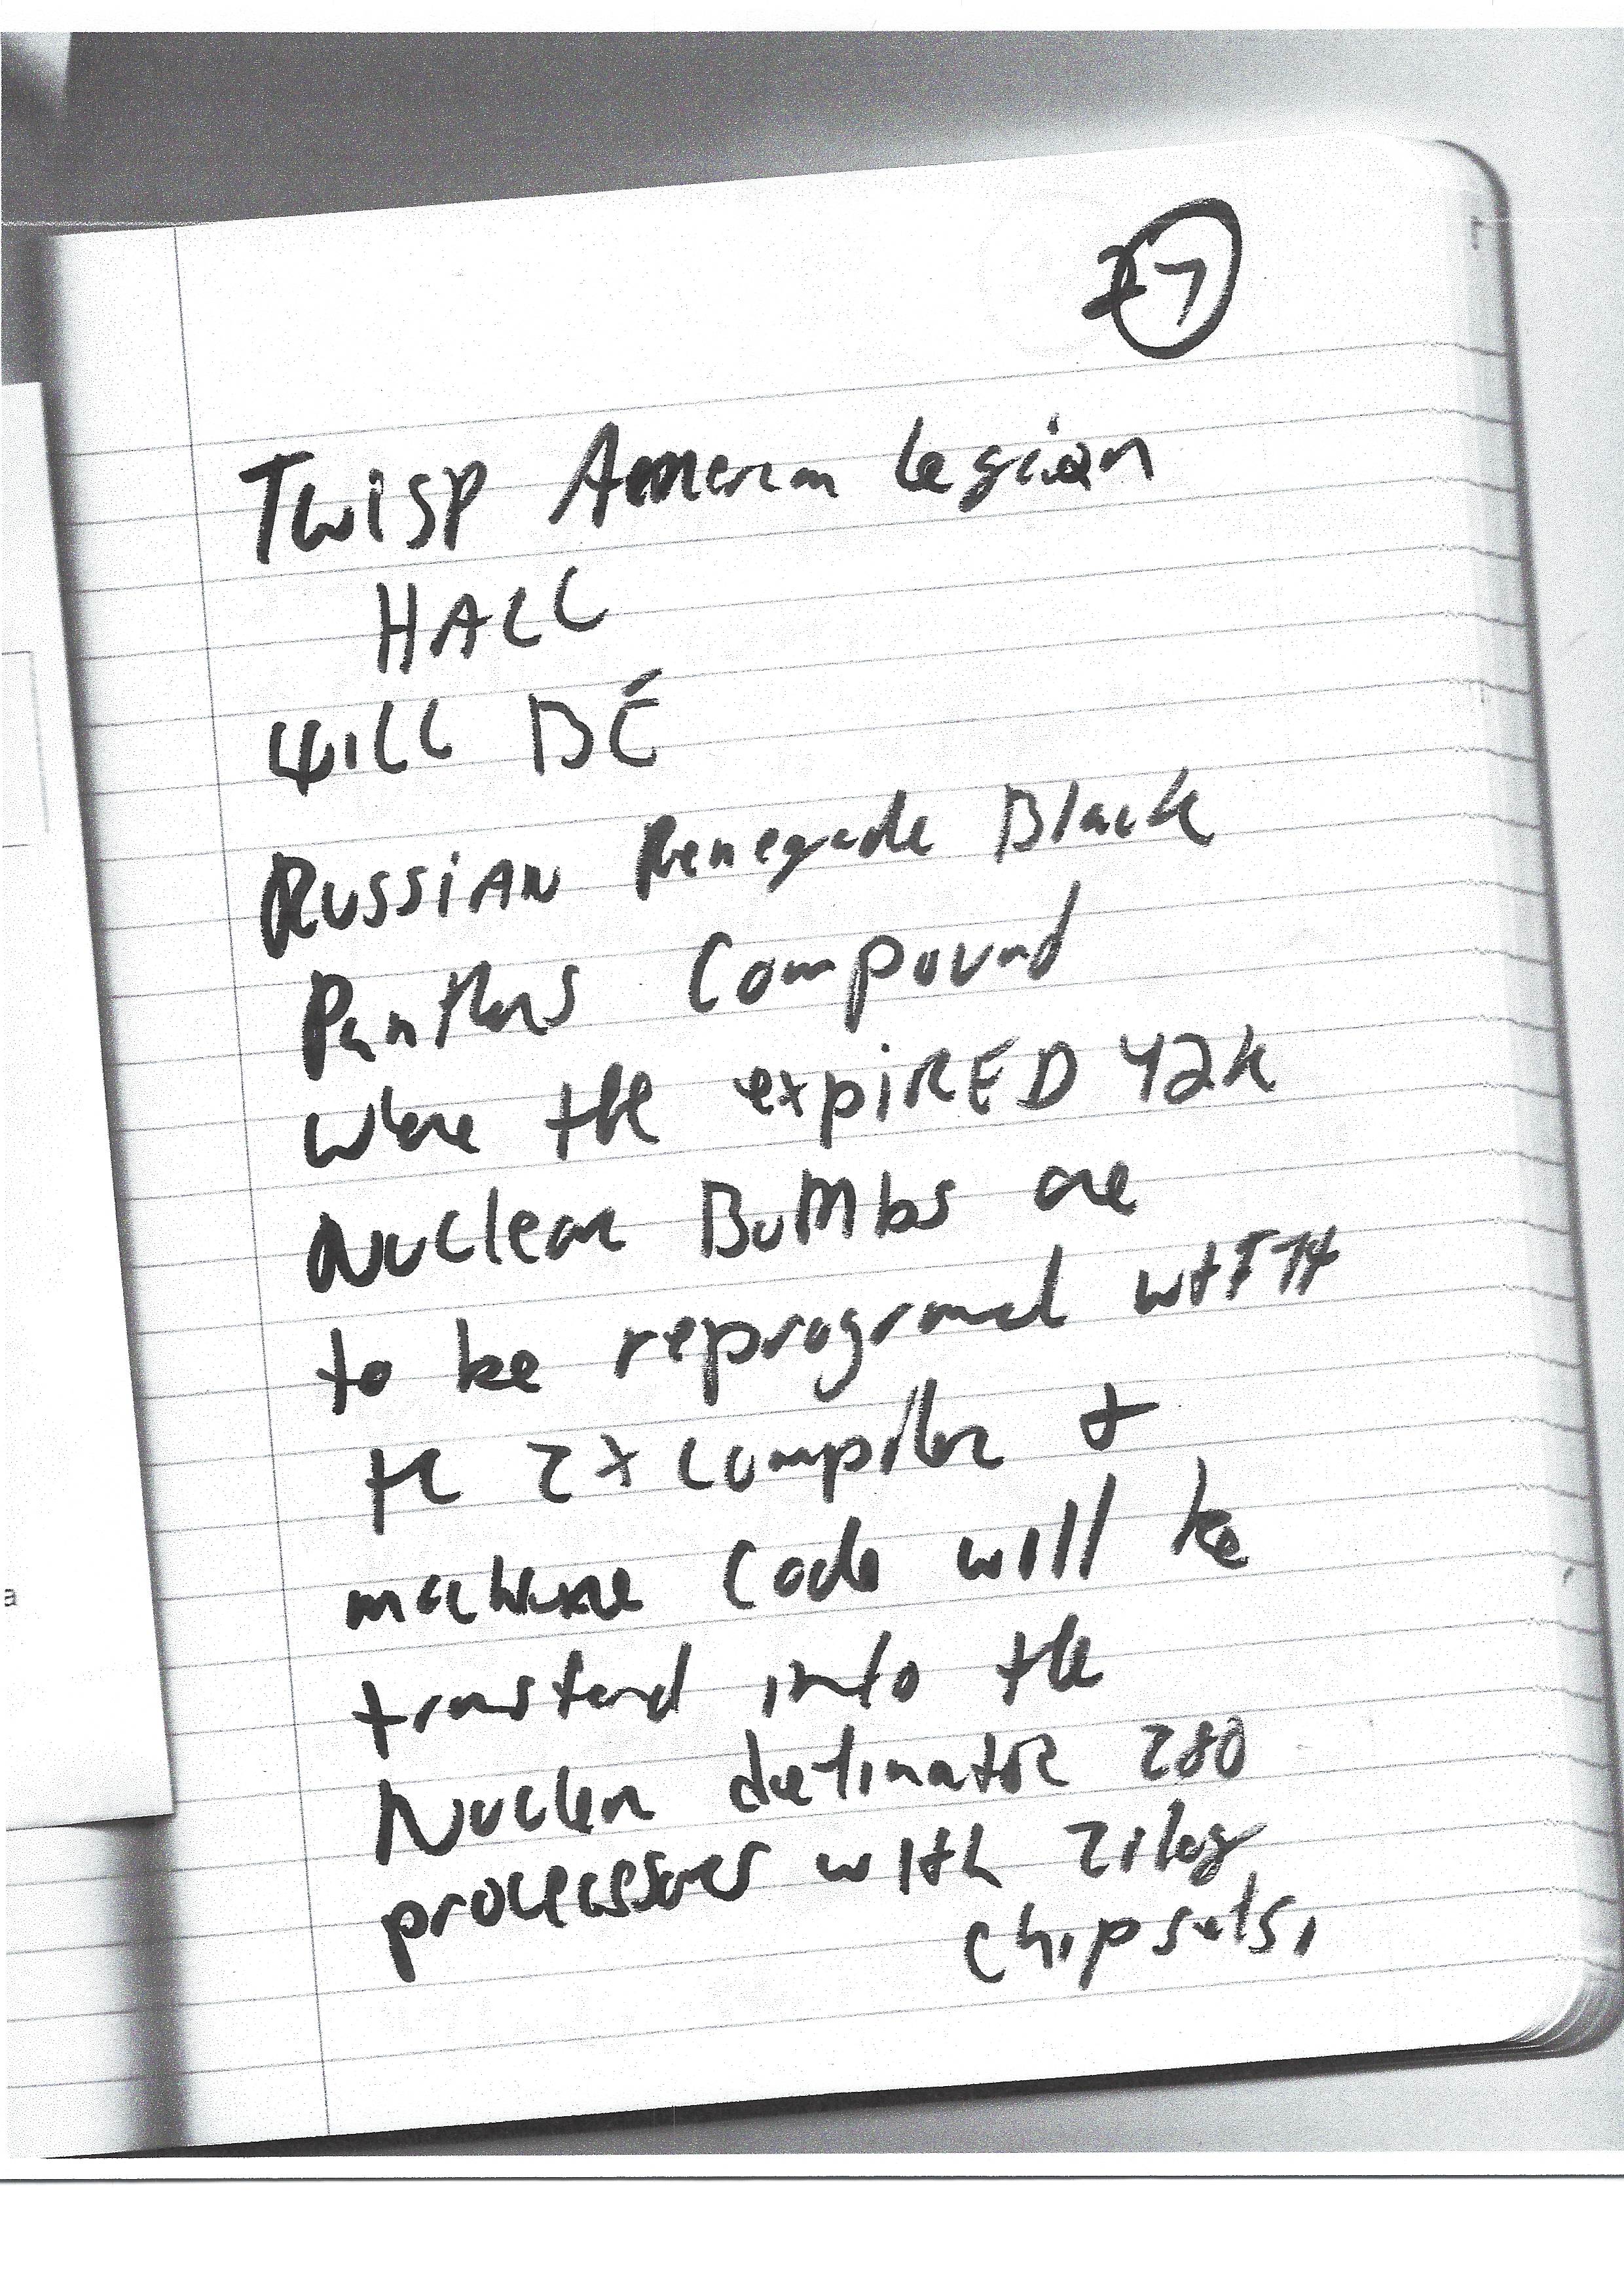 27
Twisp American Legion
HALL
WILL BE
RUSSIAN Renegade Black
Panthers Compound
where the expiRED Y2K
Nuclear BuMbs are
to be reprogramed wITH
the ZX compiler &
machine Code will be
transferd into the
Nuclear detinator Z80
processors with Zilog
chipsets,
a